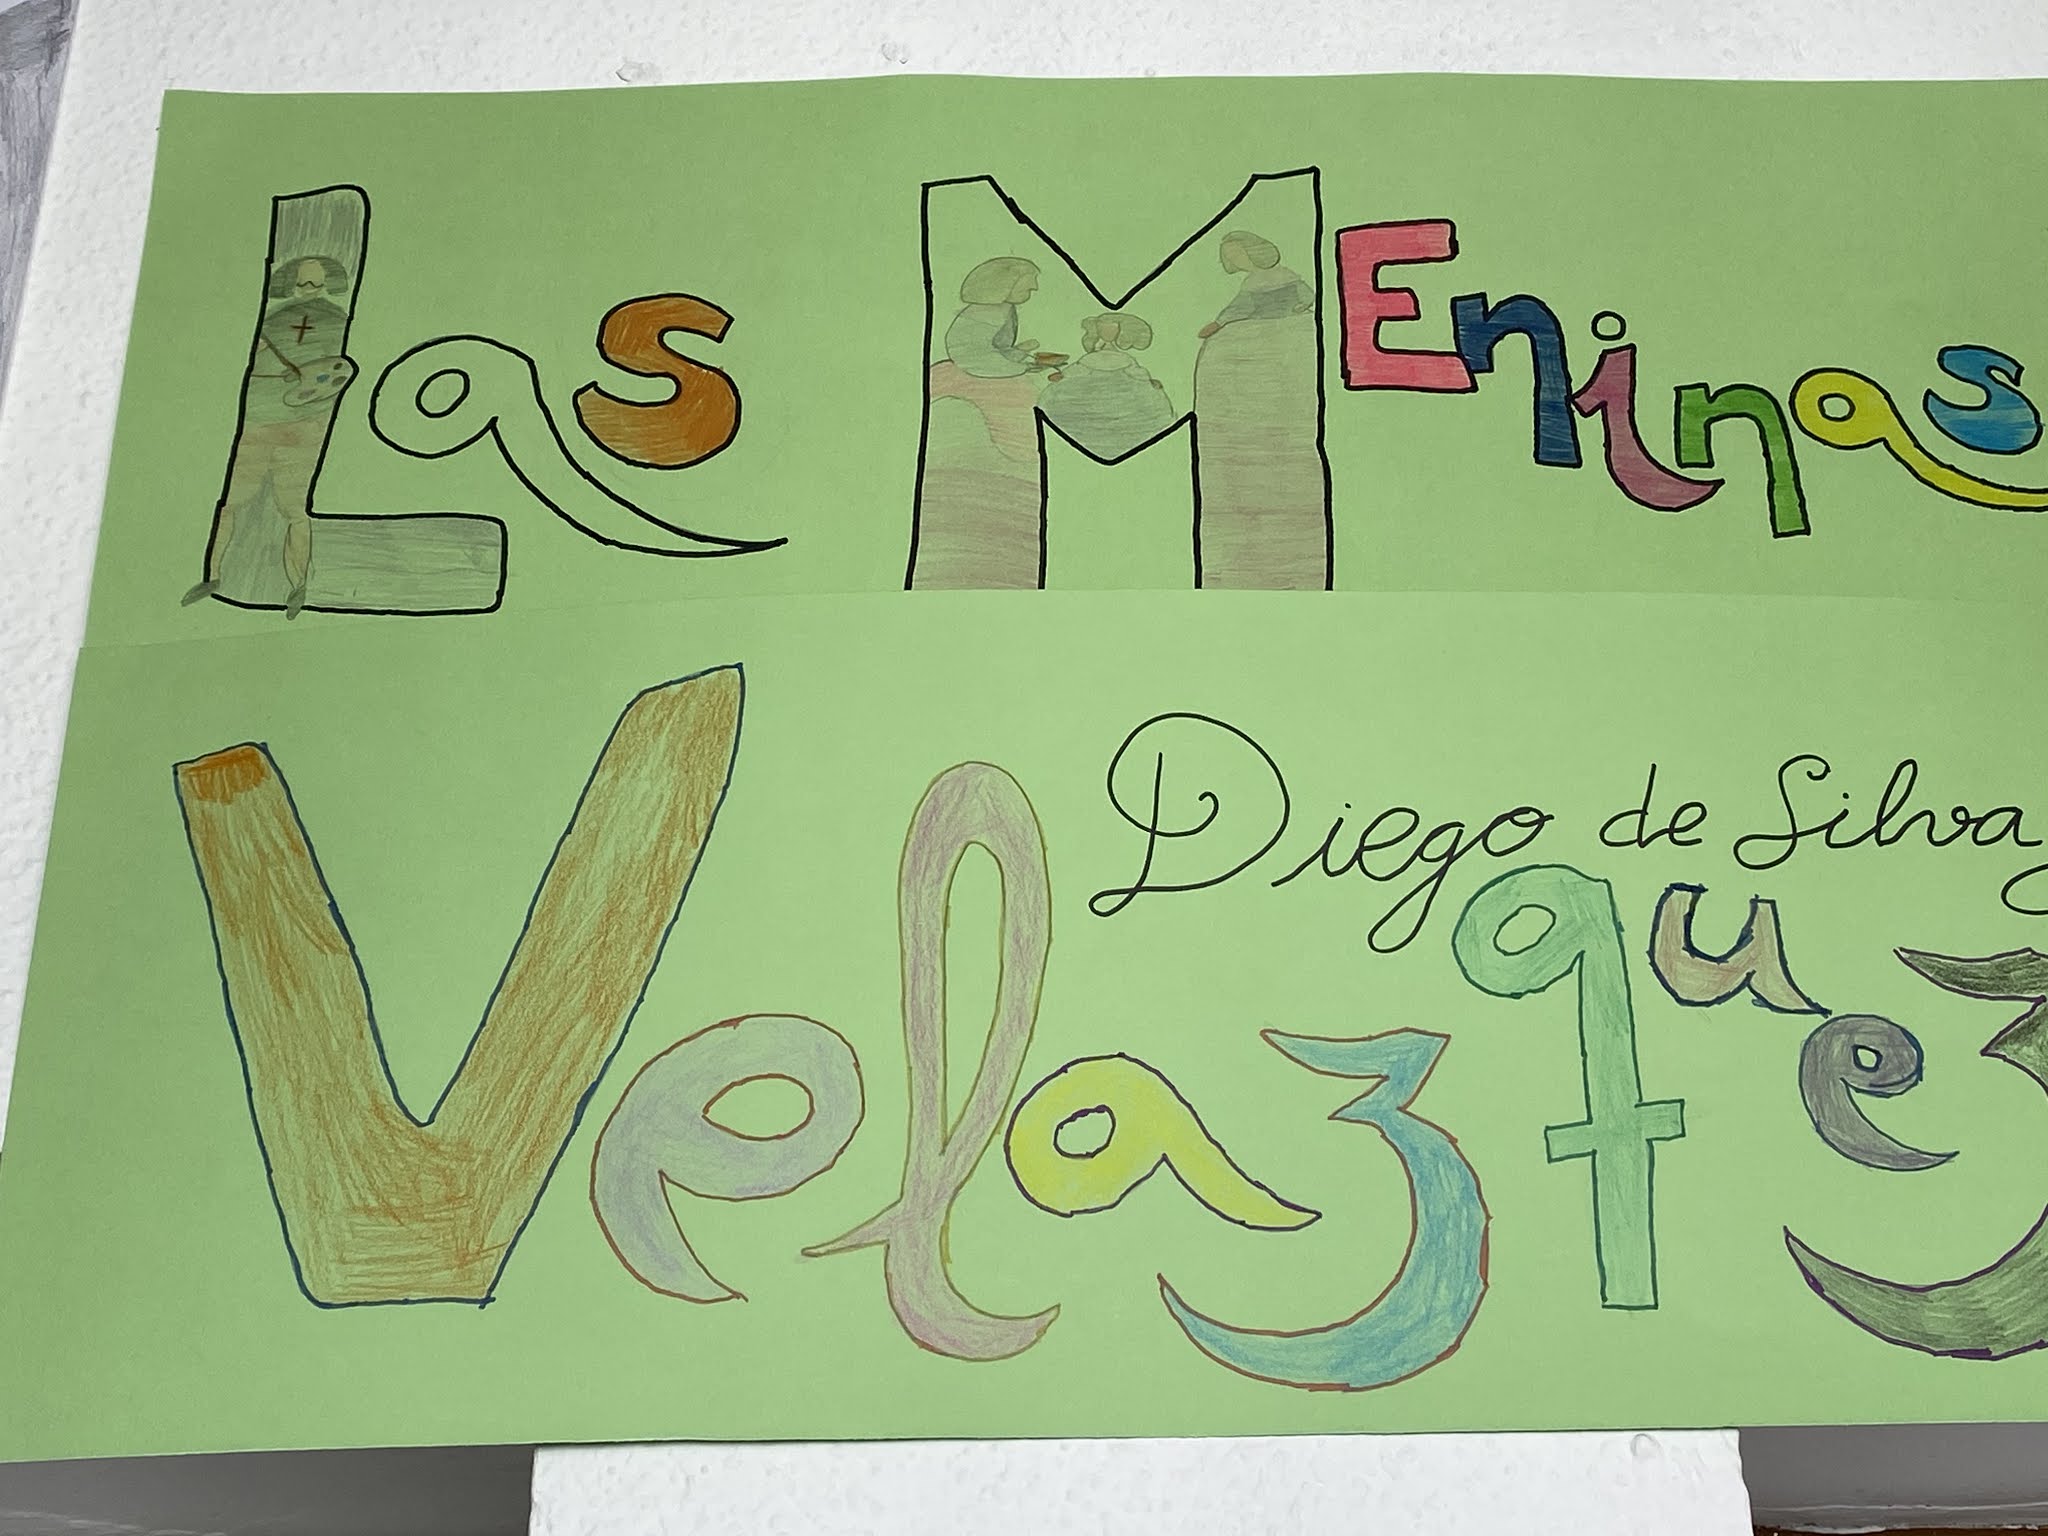 Las MEninas
Diego de Silva y
Velazquez